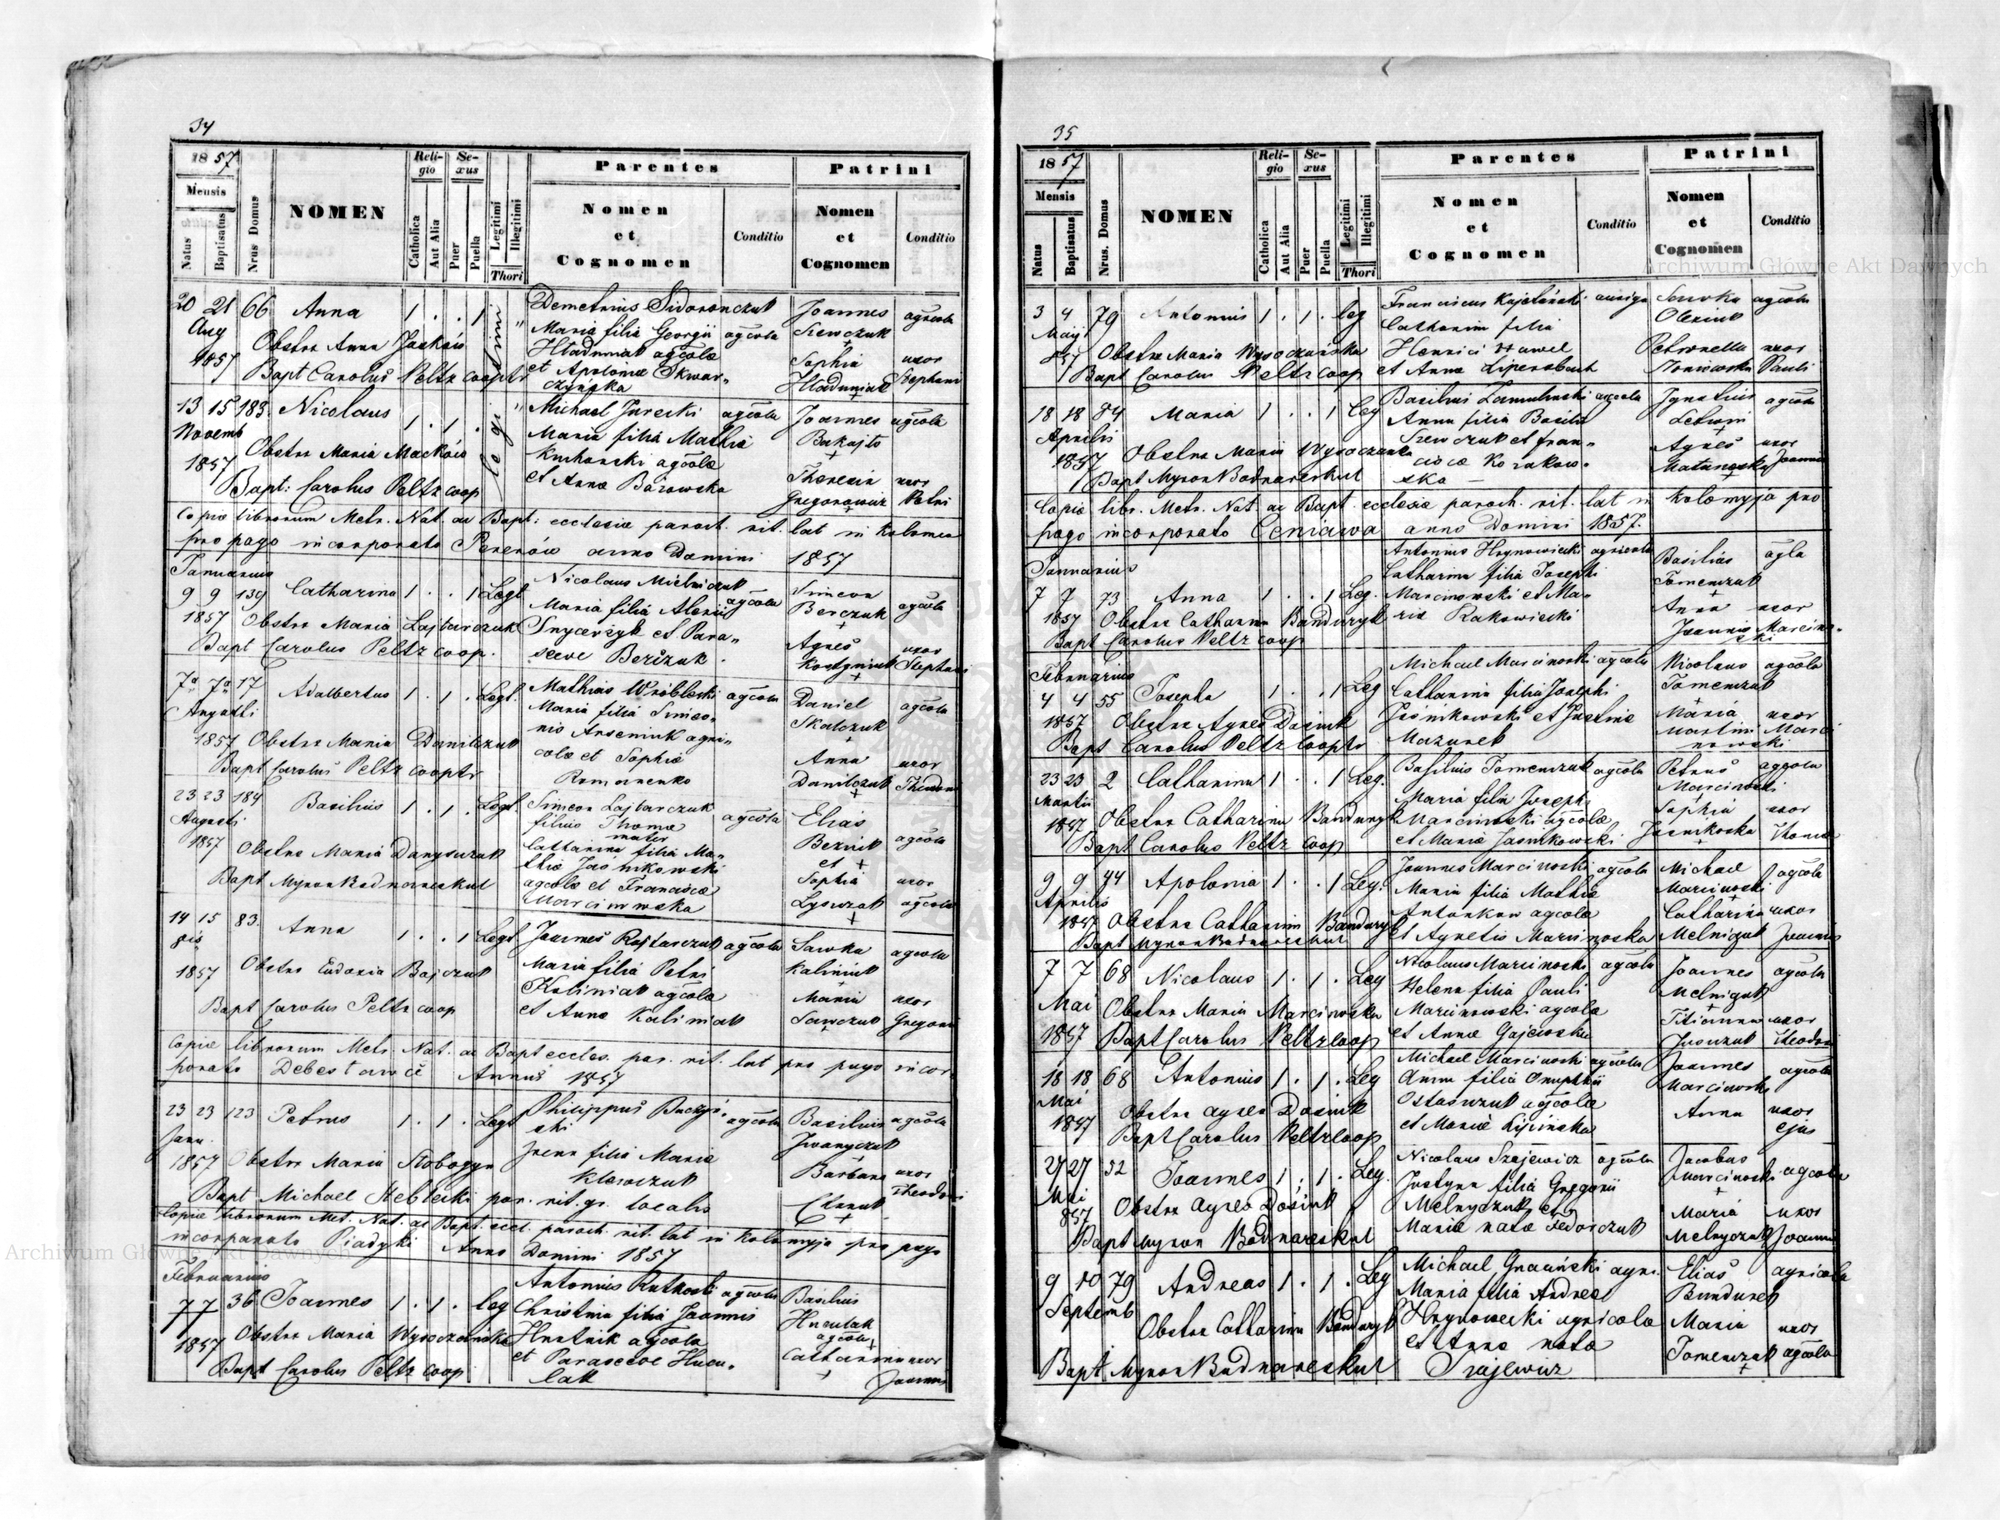 34
1857
Mensis
Natus
Baptisatus
Nrus Domus
NOMEN
Religio
Catholica
Aut Alia
Sexus
Puer
Puella
Legitimi
Illegitimi
Thori
Parentes
Nomen
et
Cognomen
Conditio
Patrini
Nomen
et
Cognomen
Conditio
20 21 66 Anna 1 . . 1 legitimi Demetrius Sidoronczuk Joannes agricola
Aug Maria filia Georgii agcola Szewczuk
Obstrx Anna Hladuniak agcolae Sophia uxor
1857 Bapt Carolus Peltz cooptr et Apoloniae Skwar- Hladuniak Stephani
czyńska
13 15 183 Nicolaus 1 . 1 . Michael Jurecki agcola Joannes agcola
Novemb Maria filia Mathiae
Obstrx Maria Mackow agcolae
1857 et Annae Theresia uxor
Bapt: Carolus Peltz coop Petri
Copia librorum Metr. Nat. ac Bapt: ecclesiae paroch. rit. lat in Kolomea
pro pago incorporato Pererów anno Domini 1857
Januarius
9 9 139 Catharina 1 . . 1 Legt Nicolaus Mielniczuk Simeon
Maria filia Alexii agcola Berczuk agcola
1857 Obstrx Maria Lajtarczuk et Para-
Bapt Carolus Peltz coop. sceve Berczuk Agnes uxor
Stephani
7a 7a 17 Adalbertus 1 . 1 . Legt. Mathias Wróbleski agcola Daniel agcola
Augusti Maria filia Simeo-
nis Arseniuk agri-
1857 Obstrx Maria Danilczuk colae et Sophiae Anna uxor
Bapt Carolus Peltz cooptr Romanenko Danilczuk Theodori
23 23 184 Basilius 1 . 1 . Legt. Simeon Lajtarczuk agcola Elias
Augusti filius Thomae agcola
mater
1857 Catharina filia Ma- et
Obstrx Maria Danyszczuk thiae Jaśnikowski
Bapt Myron Bodnareskul agcolae et Franciscae Sophia uxor
Marcinowska agcola
14 15 83. Anna 1 . . 1 Legt Joannes Rajtarczuk agcola Sawka agcola
Maria filia Petri Kaliniuk
1857 Obstrx Eudoxia Bajczuk Kaliniak agcolae Maria uxor
Bapt Carolus Peltz coop et Annae Kaliniak Sawczuk Gregorii
Copia librorum Metr. Nat. ac Bapt eccles. par. rit. lat pro pago incor-
porato Debeslawce Annus 1857
23 23 123 Petrus 1 . 1 . Legt Philippus agcola Basilius agcola
Janu. ski Iwanyczuk
1857 Obstrx Maria Irena filia Mariae Barbara uxor
Bapt Michael par. rit. gr. localis Theodori
Copia librorum Met. Nat. ac Bapt. eccl. paroch. rit. lat in Kolomyja pro pago
incorporato Piadyki Anno Domini 1857
Februarius
7 7 36 Joannes 1 . 1 . Leg Antonius Rutkoski agcola Basilius
Christina filia Joannis Huculak
1857 Obstrx Maria Wysoczańska Hnatiuk agcola agcola
Bapt Carolus Peltz coop et Parasceve Hucu- Catharina uxor
lak Joannis
35
1857
Mensis
Natus
Baptisatus
Nrus. Domus
NOMEN
Religio
Catholica
Aut Alia
Sexus
Puer
Puella
Legitimi
Illegitimi
Thori
Parentes
Nomen
et
Cognomen
Conditio
Patrini
Nomen
et
Cognomen
Conditio
3 4 79 Antonius 1 . 1 . leg Franciscus Kajetański auriga Sawka agcola
Maij Catharina filia Olexiuk
857 Obstrx Maria Wysoczańska Henrici Hawel Petronella uxor
Bapt Carolus Peltz coop et Annae Pauli
18 18 84 Maria 1 . . 1 leg Basilius agcola Ignatius agcola
Aprilis Anna filia Basilii
1857 Obstrx Maria Wysoczanska Szewczuk et Fran- Agnes uxor
Bapt Myron Bodnareskul ciscae Kozakow- Joannis
ska
Copia libr. Metr. Nat. ac Bapt ecclesiae paroch. rit. lat in Kolomyja pro
pago incorporato Ceniawa anno Domini 1857.
Januarius Antonius Hrynowiecki agricola Basilius agla
Catharina filia Josephi Tomenczuk
7 7 73 Anna 1 . . 1 Leg. Marcinowski et Ma- Anna uxor
1857 Obstrx Catharina Banduryk ria Rakowiecki Joannis Marcino-
Bapt Carolus Peltz coop ski
Februarius Michael Marcinoski agcola Nicolaus agcola
4 4 55 Josepha 1 . . 1 Leg Catharina filia Josephi Tomenczuk
1857 Obstrx Agnes Dosiuk Jaśnikowski et Justinae Maria uxor
Bapt Carolus Peltz Cooptr Mazurek Martini Marci
nowski
23 23 2 Catharina 1 . . 1 Leg. Basilius Tomenczuk agcola Petrus agcola
Martii Maria filia Josephi Marcinoski
1857 Obstrx Catharina Banduryk Marcinowski agcolae Sophia uxor
Bapt Carolus Peltz coop et Mariae Jasnikowski Jasnikoska Thomae
9 9 44 Apolonia 1 . . 1 Leg. Joannes Marcinoski agcola Michael agcola
Aprilis Maria filia Mathiae Marcinoski
1857 Obstrx Catharina Banduryk Antonkow agcolae Catharina uxor
Bapt Myron Bodnareskul et Agnetis Marcinoska Melniczuk Joannis
7 7 68 Nicolaus 1 . 1 . Leg Nicolaus Marcinoski agcola Joannes agcola
Mai Helena filia Pauli Melniczuk
Obstrx Maria Marcinoska Marcinowski agcolae Titianna uxor
1857 Bapt Carolus Peltz Coop et Annae Gajewska Theodori
18 18 68 Antonius 1 . 1 . Leg Michael Marcinoski agcola Joannes agcola
Mai Anna filia Onuphrii Marcinoski
1857 Obstrx Agnes Dosiuk Ostaszczuk agcolae Anna uxor
Bapt Carolus Peltz Coop et Mariae Lipińska ejus
27 27 32 Joannes 1 . 1 . Leg. Nicolaus Szajewicz agcola Jacobus agcola
Mai Justyna filia Gregorii Marcinoski
857 Obstrx Agnes Dosiuk Melnyczuk et Maria uxor
Bapt Myron Bodnareskul Mariae natae Fedorczuk Melnyczuk Joannis
9 10 79 Andreas 1 . 1 . Leg Michael agri. Elias agricola
Septemb Maria filia Andreae
Obstrx Catharina Banduryk Hrynowiecki agricolae Maria uxor
et Anna nata
Bapt Myron Bodnareskul Szajewicz Tomenczuk agcola
Archiwum Główne Akt Dawnych
Archiwum Główne Akt Dawnych